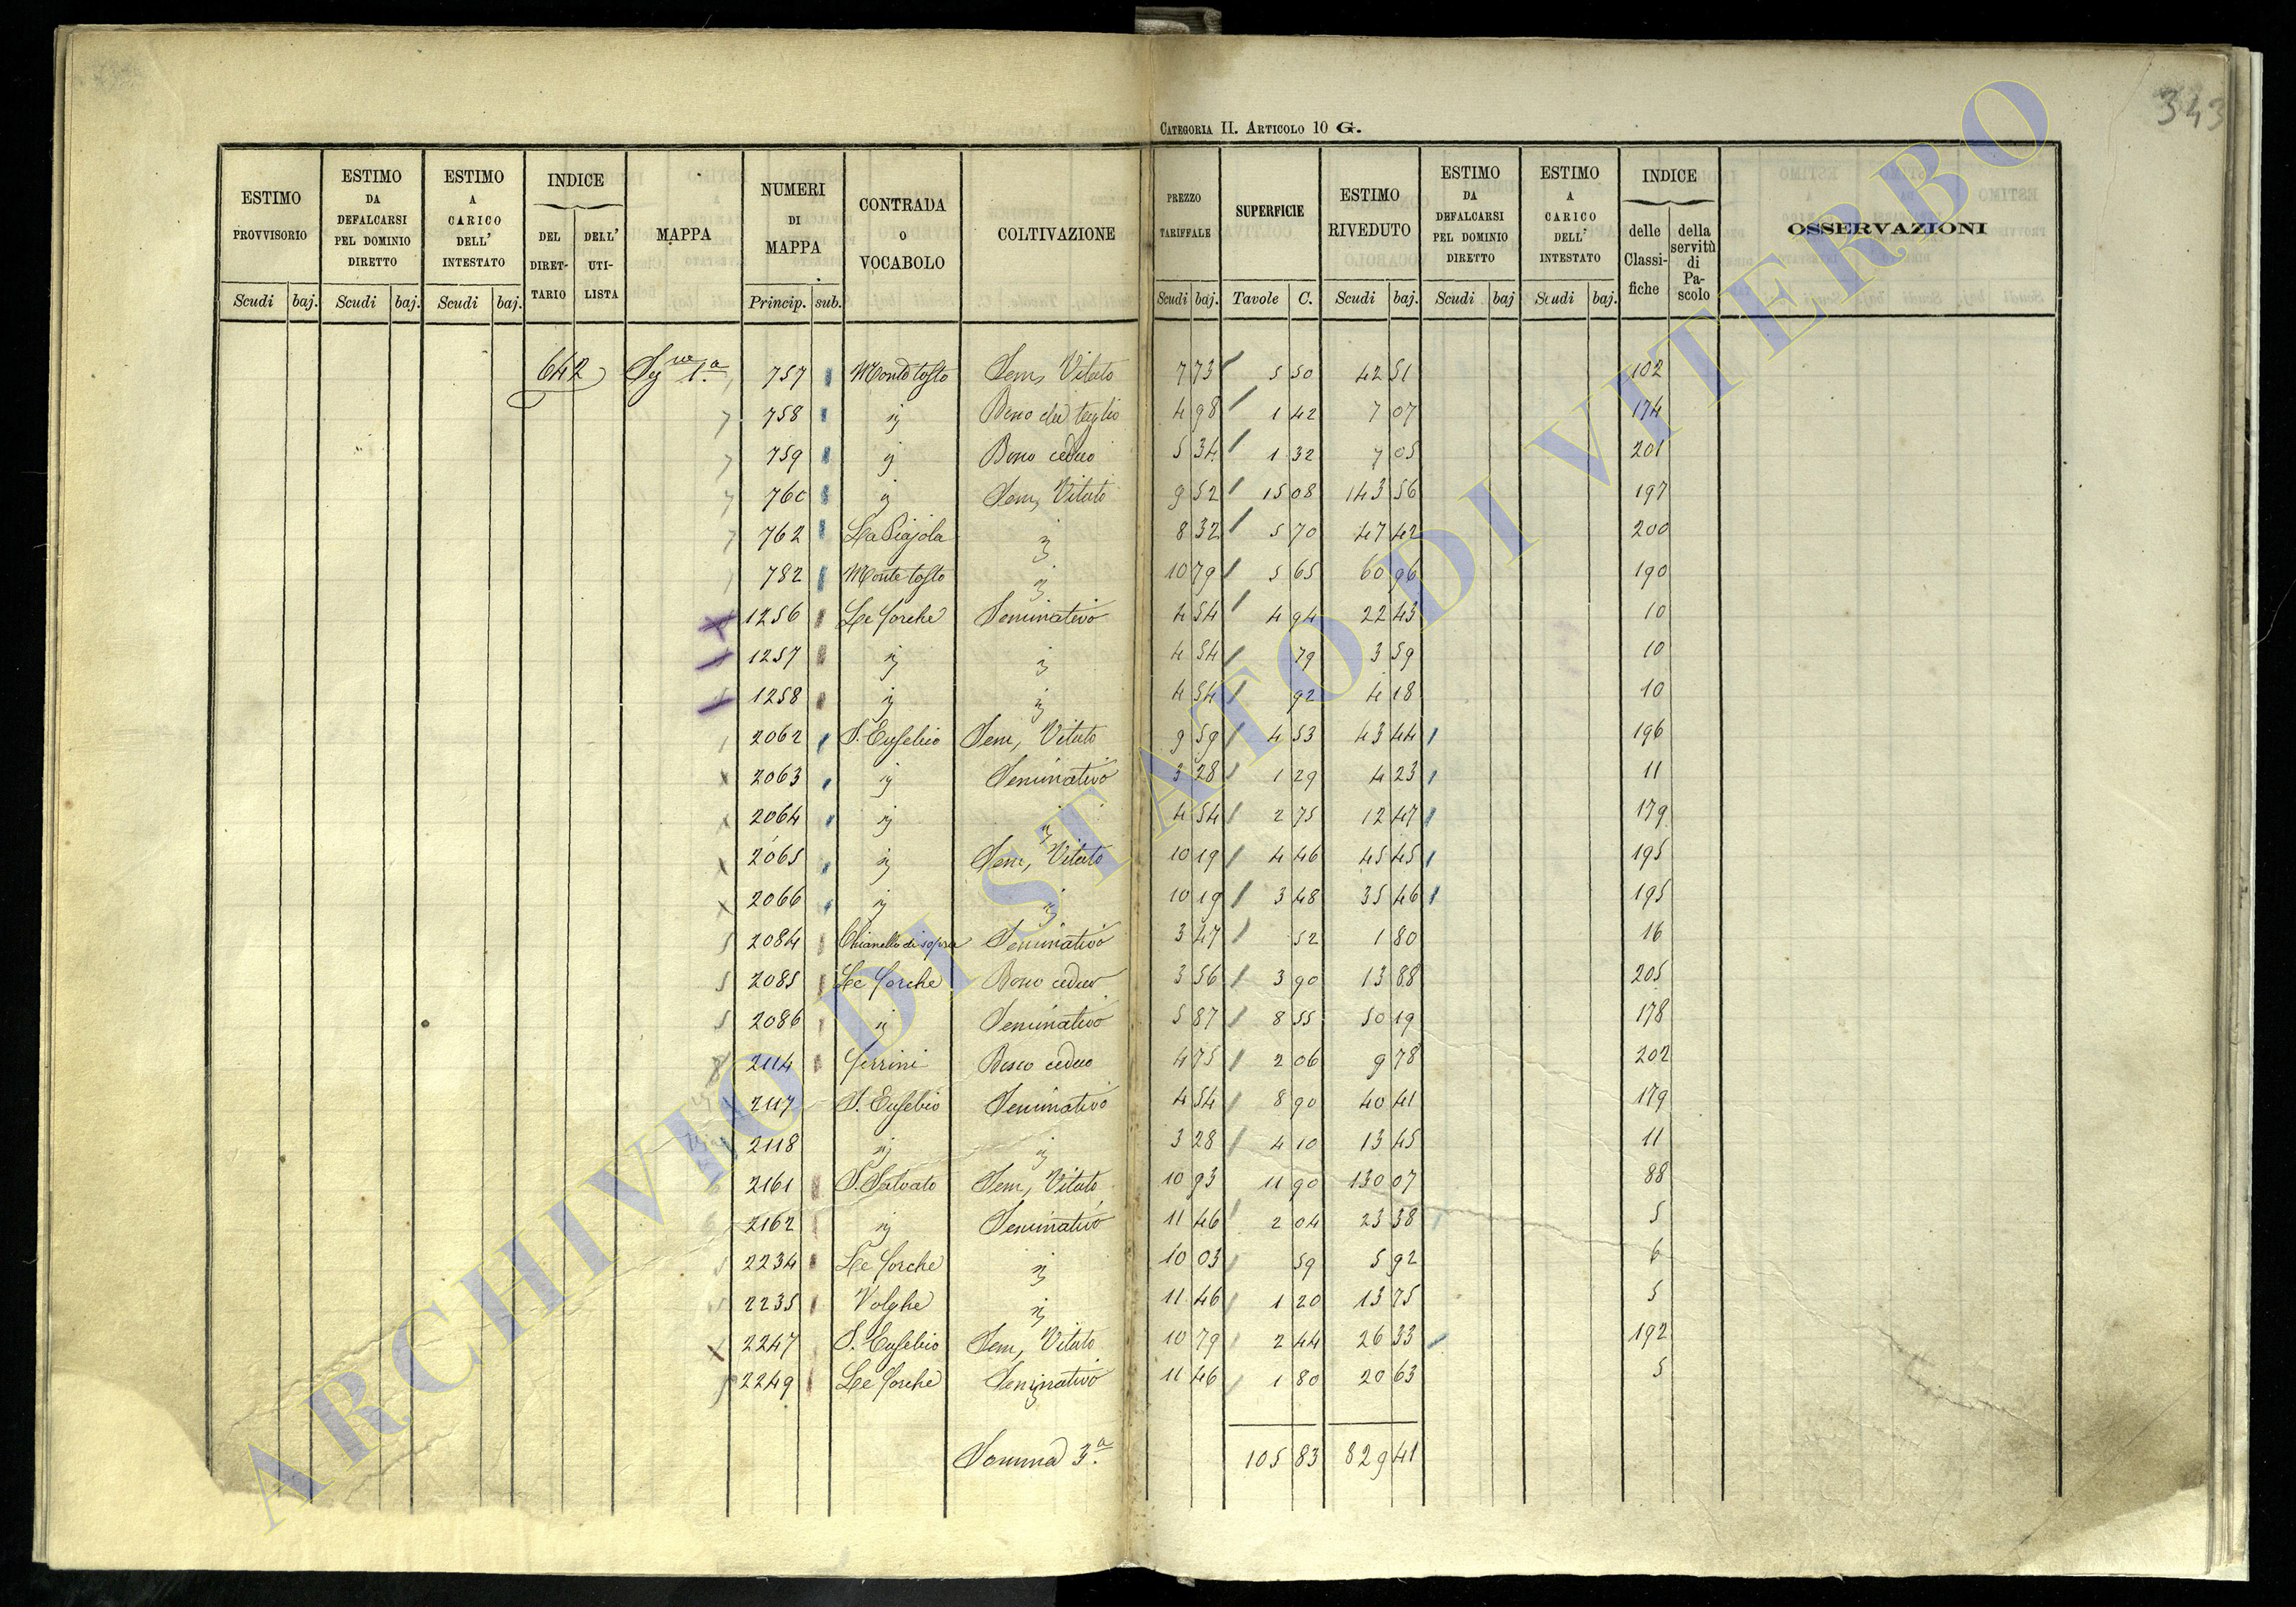 343
CATEGORIA II. ARTICOLO 10 G.
ESTIMO PROVVISORIO
ESTIMO DA DEFALCARSI PEL DOMINIO DIRETTO
ESTIMO A CARICO DELL' INTESTATO
INDICE
DEL DIRETTARIO
DELL' UTILISTA
MAPPA
NUMERI DI MAPPA
CONTRADA O VOCABOLO
COLTIVAZIONE
PREZZO TARIFFALE
SUPERFICIE
ESTIMO RIVEDUTO
ESTIMO DA DEFALCARSI PEL DOMINIO DIRETTO
ESTIMO A CARICO DELL' INTESTATO
INDICE
delle Classifiche
della servitù di Pascolo
OSSERVAZIONI
Scudi baj. Scudi baj. Scudi baj. Princip. sub. Scudi baj. Tavole C. Scudi baj. Scudi baj Scudi baj.
642 1.a 757 Monte tosto Sem, Vitato 7 73 5 50 42 51 102
758 ij Bosco da taglio 4 98 1 42 7 07 174
759 ij Bosco ceduo 5 34 1 32 7 05 201
760 ij Sem, Vitato 9 52 15 08 143 56 197
762 La Piajola ij 8 32 5 70 47 42 200
782 Monte tosto ij 10 79 5 65 60 96 190
1256 Le forche Seminativo 4 54 4 94 22 43 10
1257 ij ij 4 54 79 3 59 10
1258 ij ij 4 54 92 4 18 10
2062 S. Eusebio Sem, Vitato 9 59 4 53 43 44 196
2063 ij Seminativo 3 28 1 29 4 23 11
2064 ij ij 4 54 2 75 12 47 179
2065 ij Sem, Vitato 10 19 4 46 45 45 195
2066 ij ij 10 19 3 48 35 46 195
2084 Chianello di sopra Seminativo 3 47 52 1 80 16
2085 Le forche Bosco ceduo 3 56 3 90 13 88 205
2086 ij Seminativo 5 87 8 55 50 19 178
2114 Bosco ceduo 4 75 2 06 9 78 202
2117 S. Eusebio Seminativo 4 54 8 90 40 41 179
2118 ij ij 3 28 4 10 13 45 11
2161 S. Salvato Sem, Vitato 10 93 11 90 130 07 88
2162 ij Seminativo 11 46 2 04 23 38 5
2234 Le forche ij 10 03 59 5 92 6
2235 Volghe ij 11 46 1 20 13 75 5
2247 S. Eusebio Sem, Vitato 10 79 2 44 26 33 192
2249 Le forche Seminativo 11 46 1 80 20 63 5
Somma 3.a 105 83 829 41
ARCHIVIO DI STATO DI VITERBO